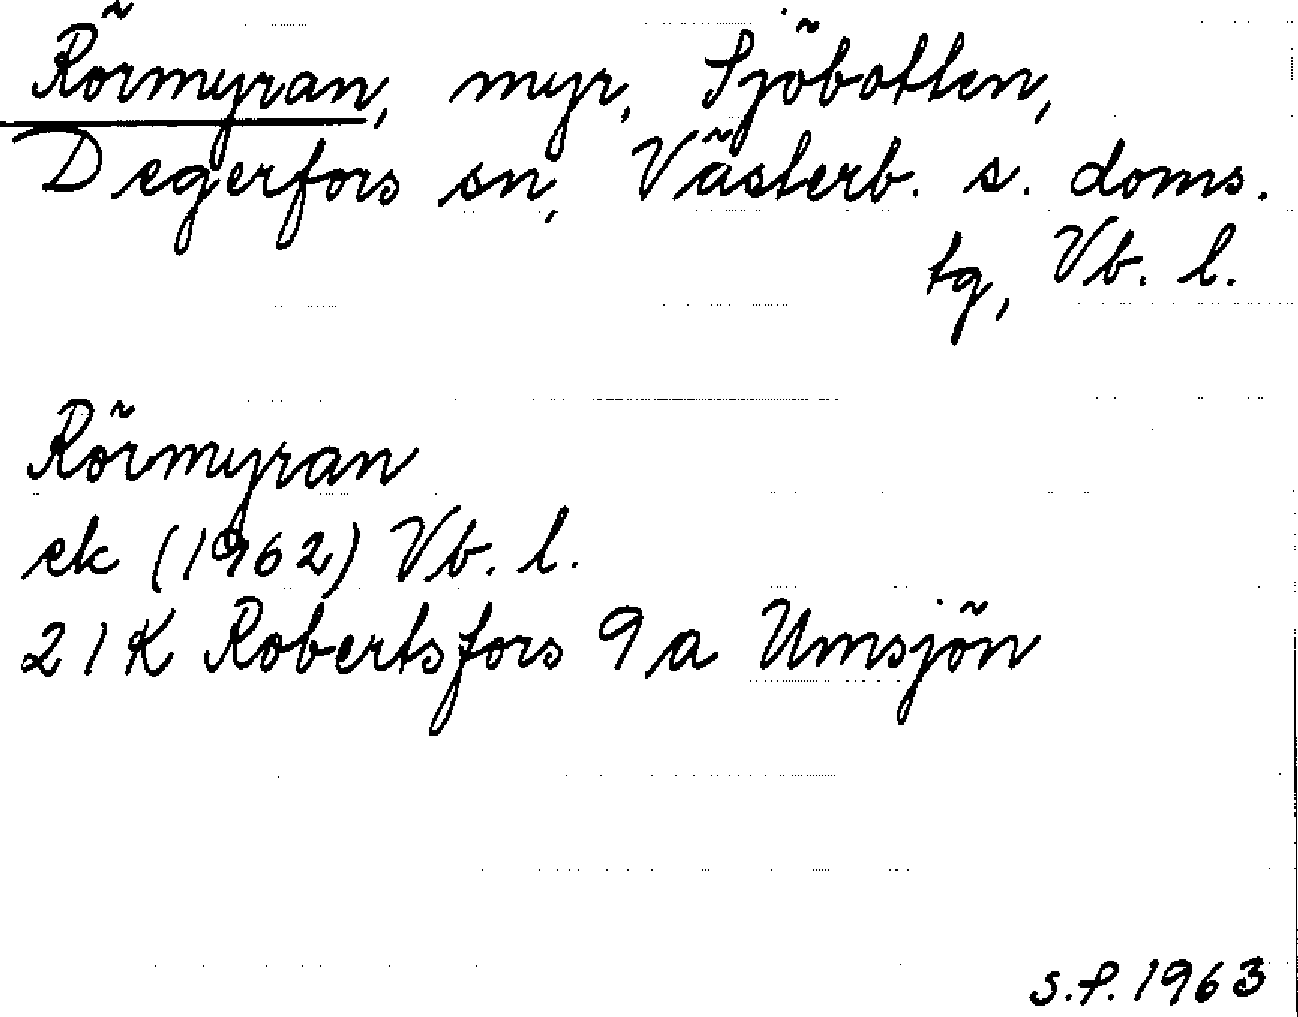 Rörmyran, myr, Sjöbotten,
Degerfors sn, Västerb. s. doms.
tg, Vb. l.
Rörmyran
ek (1962) Vb. l.
21K Robertsfors 9a Umsjön
S.P. 1963